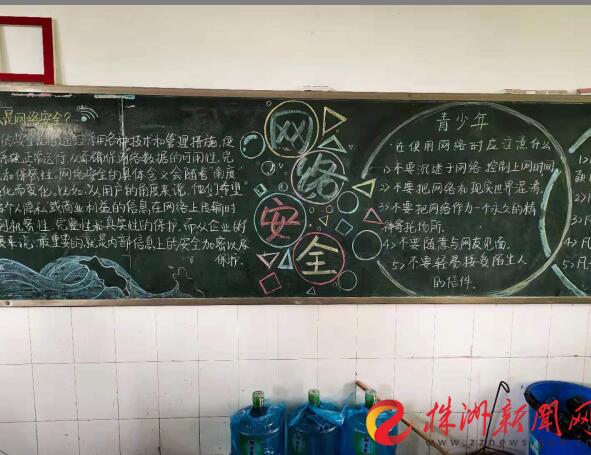 是网络安全?
技术和管理措施,使
正常运行,从而确保网络数据的可用性、完
和保密性。网络安全的具体含义会随着“角度”
化而变化。比如:从用户的角度来说,他们希望
个人隐私或商业利益的信息在网络上传输时
到机密性、完整性和真实性的保护。而从企业的
来说,最重要的就是内部信息上的安全加密以及
保护。
网
络
安
全
青少年
在使用网络时应注意什么
1、不要沉迷于网络,控制上网时间
2、不要把网络和现实世界混淆
3、不要把网络作为一个永久的精
神寄托场所.
4、不要随意与网友见面.
5、不要轻易接受陌生人
的信件.
株洲新闻网
www.zznews